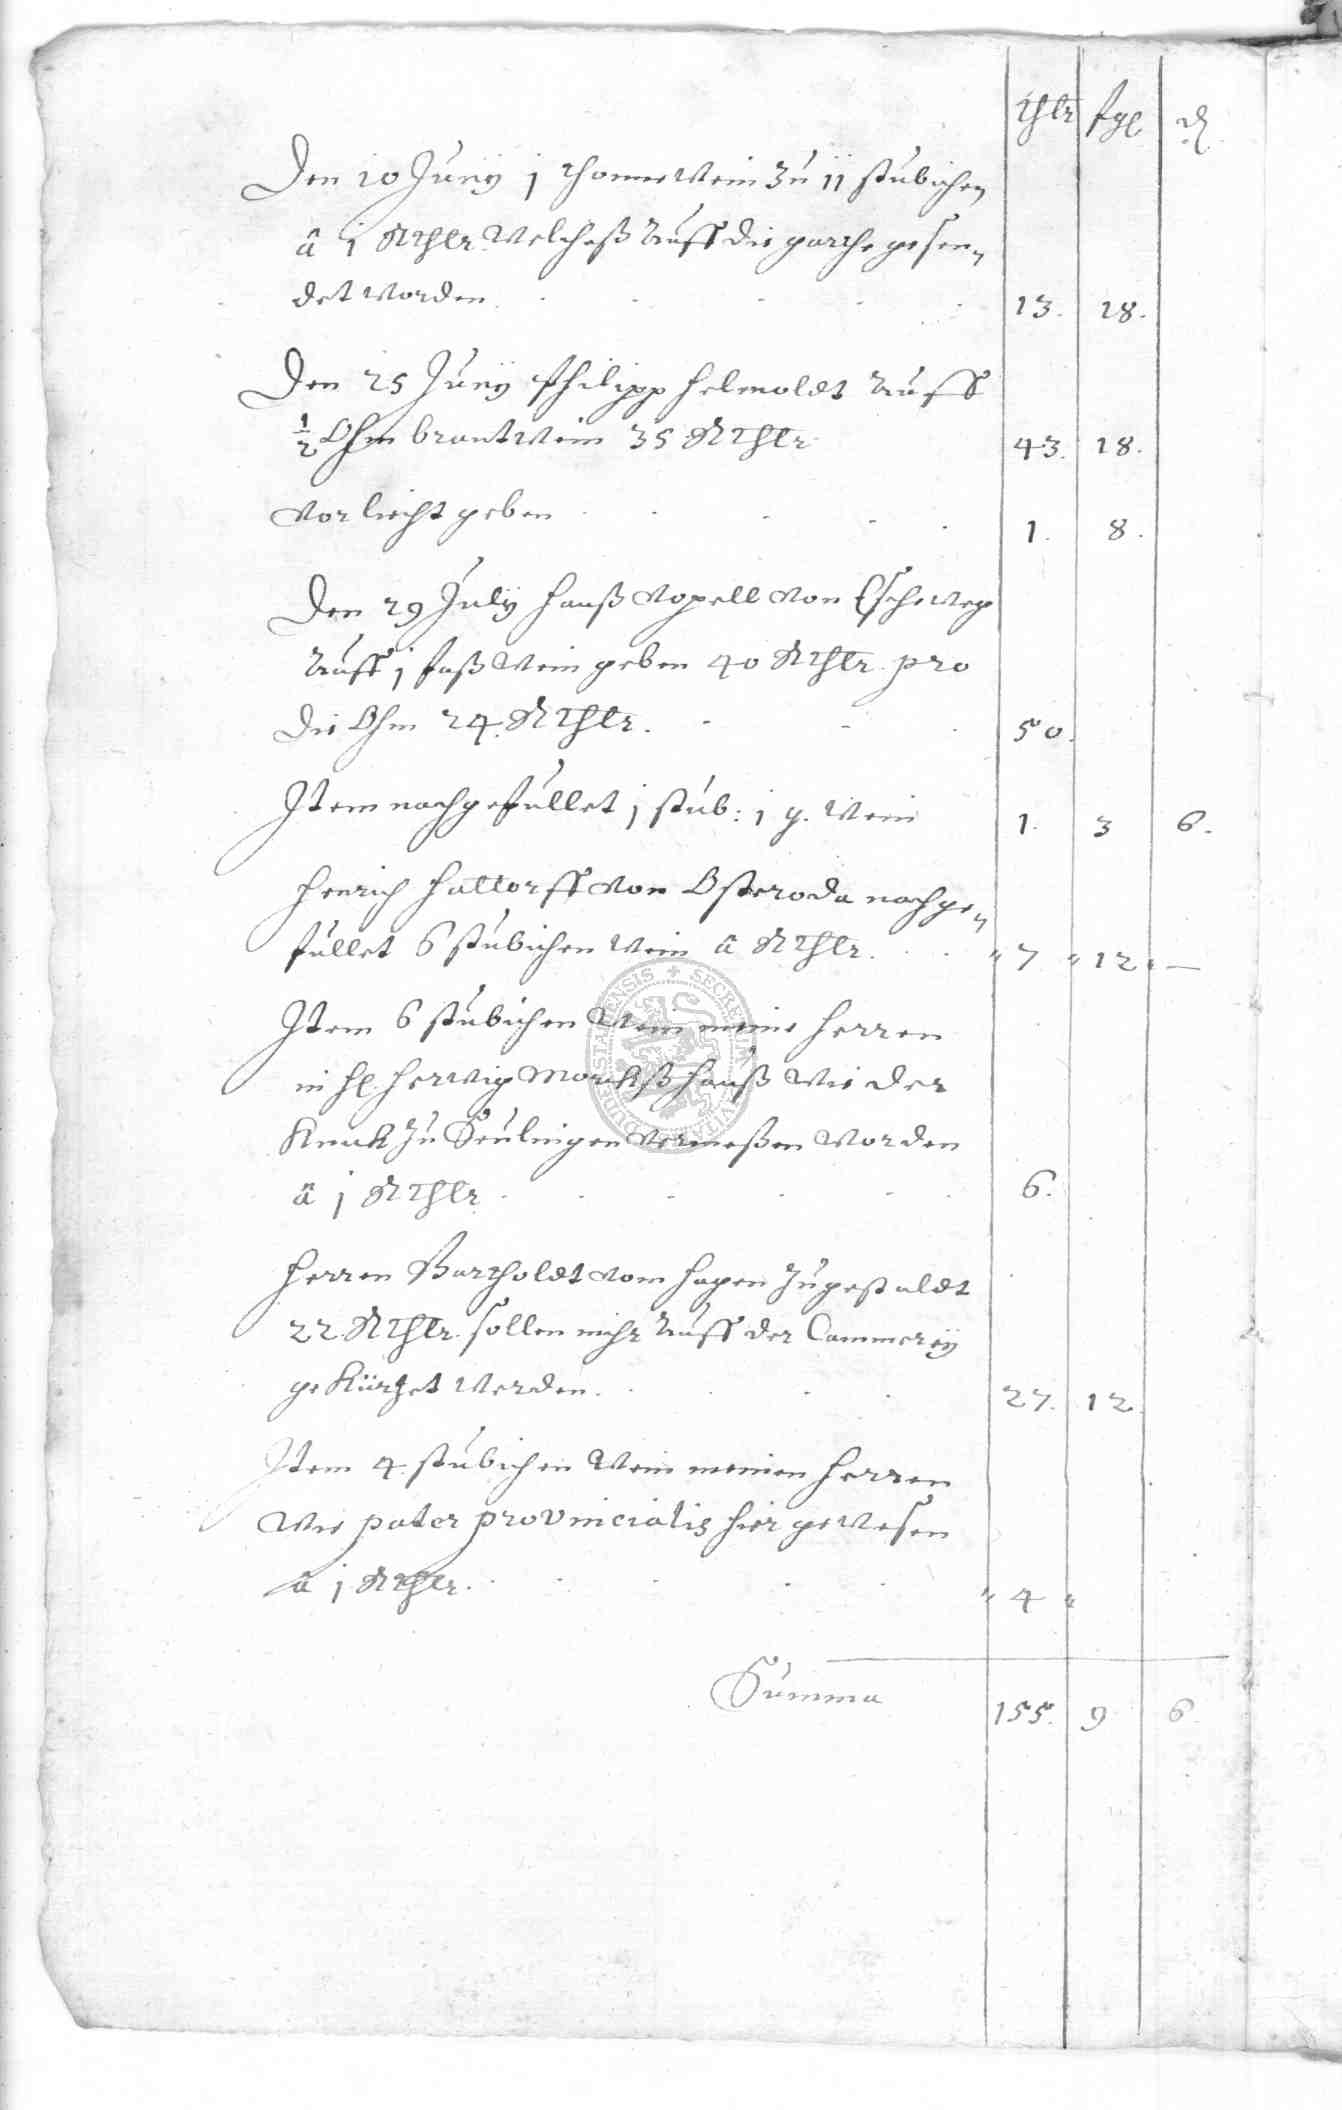 thlr sgl d
Den 10 Junÿ j thonne Wein zu 11 stubichen
â 1 Rthlr Welcheß Auff die parthe gesen„
det worden 13. 18.
Den 25 Junÿ Philipp Helmoldt Auff
½ Ohm brantwein 35 Rthlr 43. 18.
Vor licht geben 1. 8.
Den 29 Julÿ Hanß Vopell von Eschwege
Auff j faß Wein geben 40 Rthlr pro
die Ohm 24. Rthlr. 50.
Item nachgefullet j stub: j q. Wein 1. 3 6.
Henrich Hattorff von Osteroda nachge„
fullet 6 stubichen Wein â Rthlr. „ 7 „ 12 . —
Item 6 stubichen Wein meine Herren
in H. Herwig Marckß Hauß Wie der
Knick zu Seulingen vermeßen worden
â j Rthlr 6.
Herren Bartholdt vom Hagen zugestaldt
22 Rthlr. sollen mihr Auff der Cammereÿ
gekürtzet Werden. 27. 12.
Item 4. stubichen Wein meinen Herren
Wie pater provincialis hier gewesen
â j Rthlr. „ 4 „
Summa 155. 9 6.
SECRETUM CIVITATIS DUDERSTADENSIS